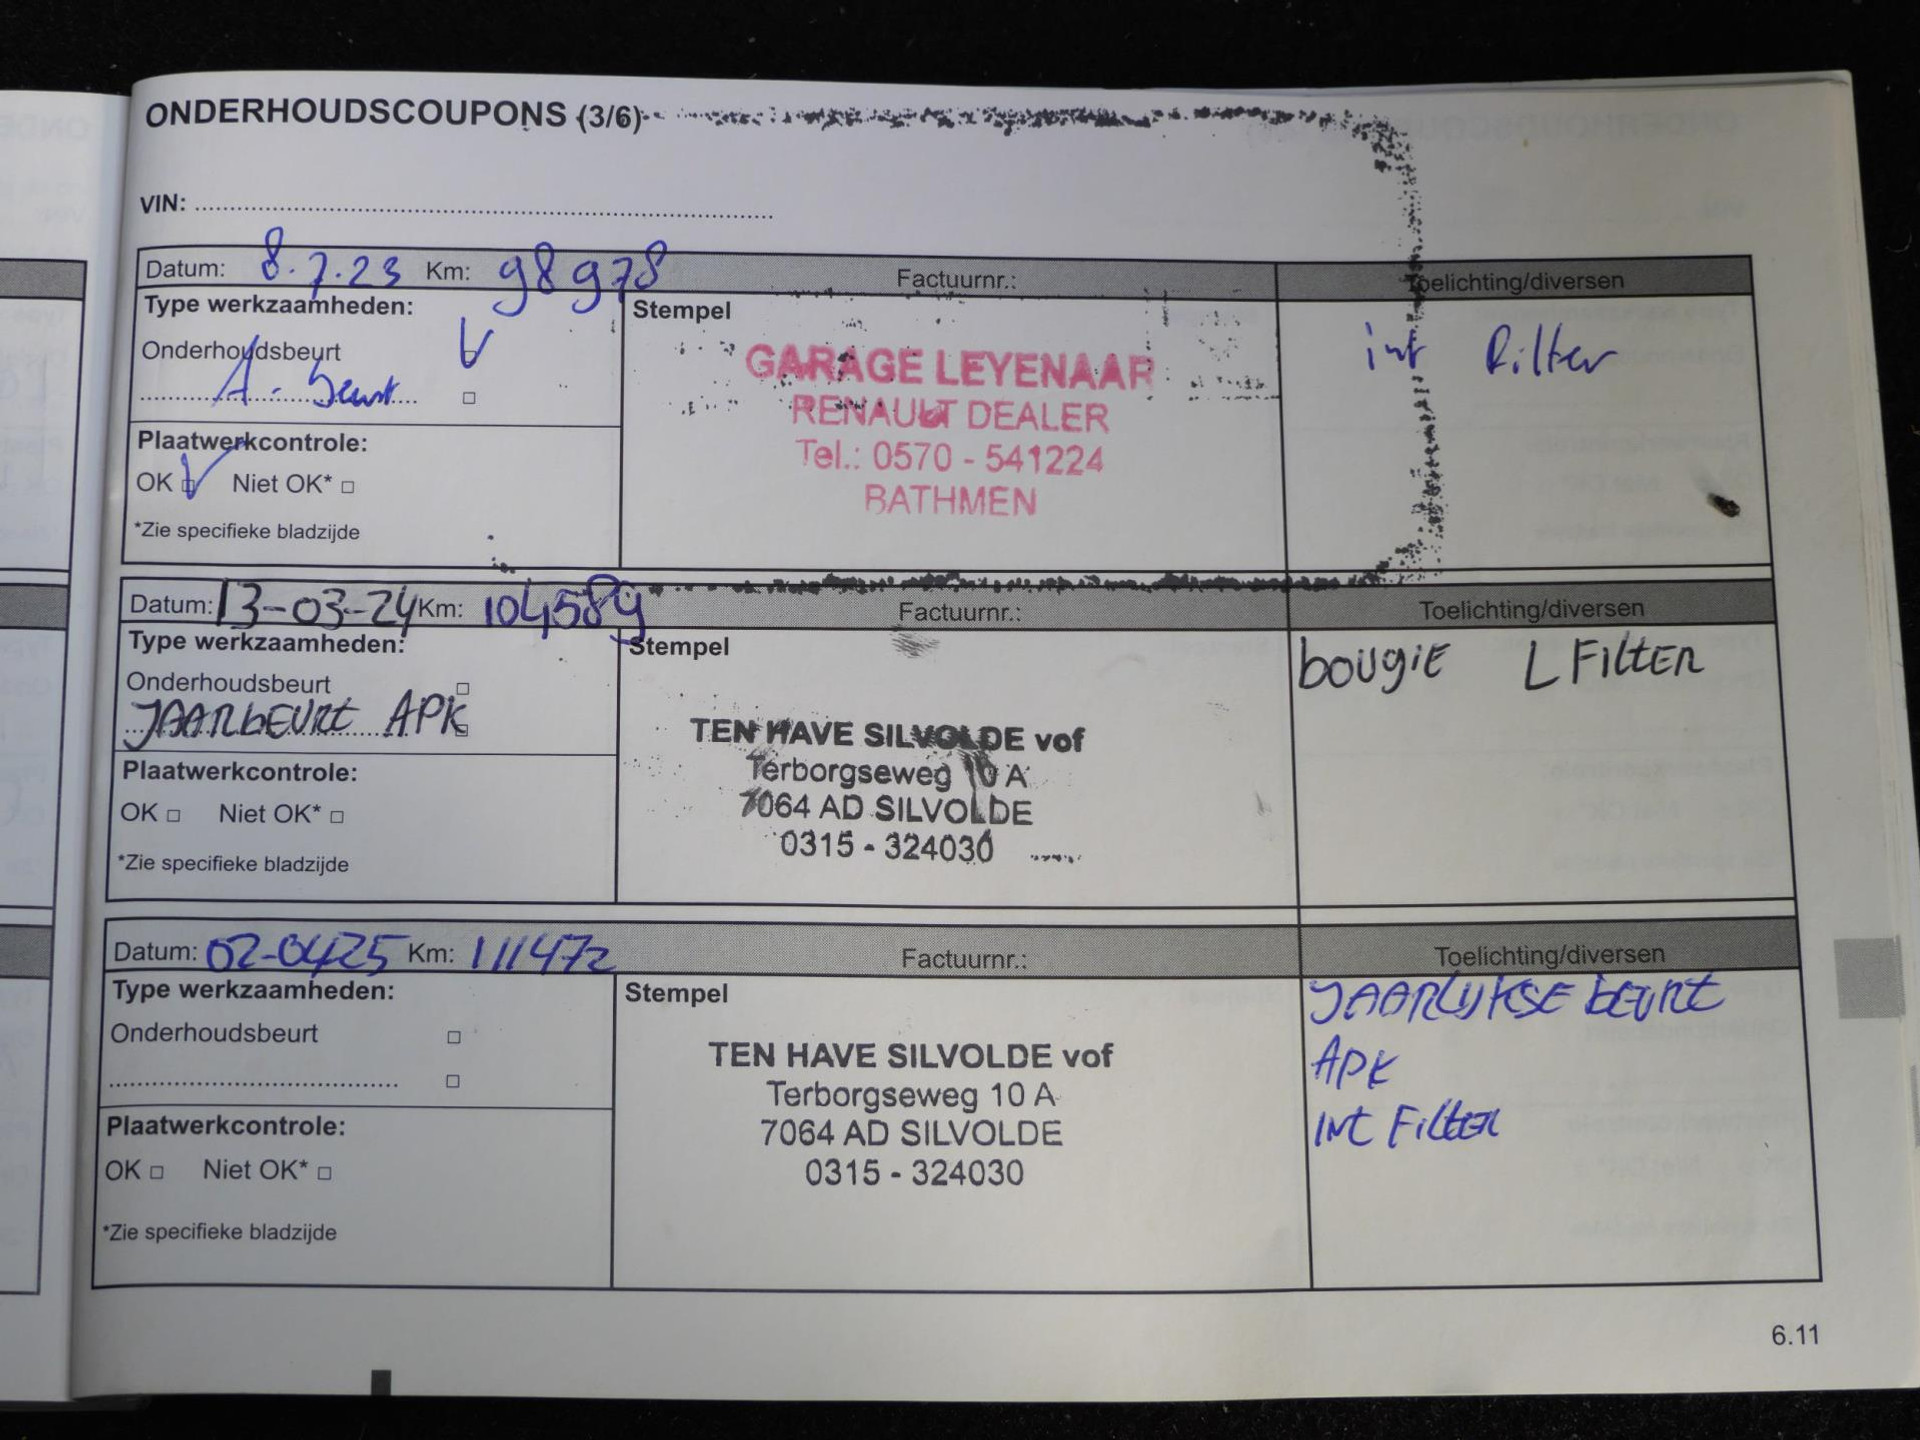 ONDERHOUDSCOUPONS (3/6)
VIN:
Datum: 8.7.23 Km: 98978 Factuurnr.: Toelichting/diversen
Type werkzaamheden:
Stempel
Onderhoudsbeurt
A-beurt
int filter
GARAGE LEYENAAR
RENAULT DEALER
Tel.: 0570 - 541224
BATHMEN
Plaatwerkcontrole:
OK Niet OK*
*Zie specifieke bladzijde
Datum: 13-03-24 Km: 104589 Factuurnr.: Toelichting/diversen
Type werkzaamheden:
Stempel
bougie L FiltER
Onderhoudsbeurt
JAARbEURt APK
TEN HAVE SILVOLDE vof
Terborgseweg 10 A
7064 AD SILVOLDE
0315 - 324030
Plaatwerkcontrole:
OK Niet OK*
*Zie specifieke bladzijde
Datum: 02-0425 Km: 111472 Factuurnr.: Toelichting/diversen
Type werkzaamheden:
Stempel
JAARLIJKSE bEURt
APK
INt FiltER
Onderhoudsbeurt
TEN HAVE SILVOLDE vof
Terborgseweg 10 A
7064 AD SILVOLDE
0315 - 324030
Plaatwerkcontrole:
OK Niet OK*
*Zie specifieke bladzijde
6.11